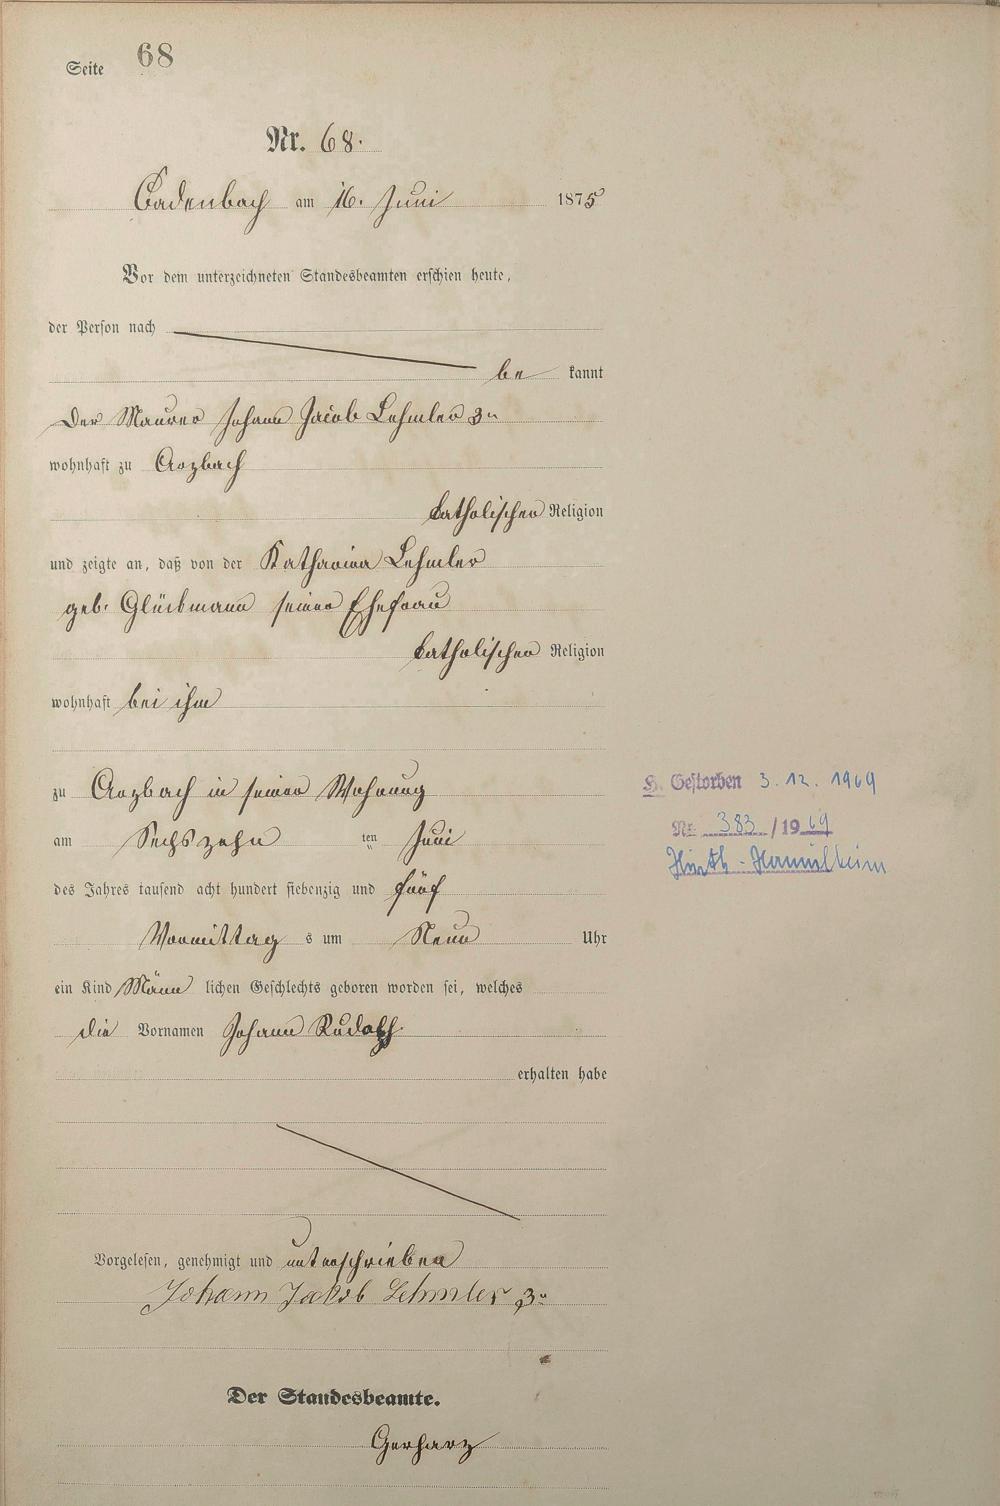 Seite 68
Nr. 68.
Cadenbach am 16. Juni 1875
Vor dem unterzeichneten Standesbeamten erschien heute,
der Person nach
be kannt
Der Maurer Johann Jacob Lehmler 3n
wohnhaft zu Arzbach
katholischer Religion
und zeigte an, daß von der Katharina Lehmler
geb. Glückmann seiner Ehefrau
katholischer Religion
wohnhaft bei ihm
zu Arzbach in seiner Wohnung
am Sechszehn ten Juni
des Jahres tausend acht hundert siebenzig und fünf
Vormittag s um Neun Uhr
ein Kind Männ lichen Geschlechts geboren worden sei, welches
die Vornamen Johann Rudolph.
erhalten habe
Vorgelesen, genehmigt und unterschrieben
Johann Jakob Lehmler 3n
Der Standesbeamte.
Gerharz
H. Gestorben 3.12.1969
Nr. 383/1969